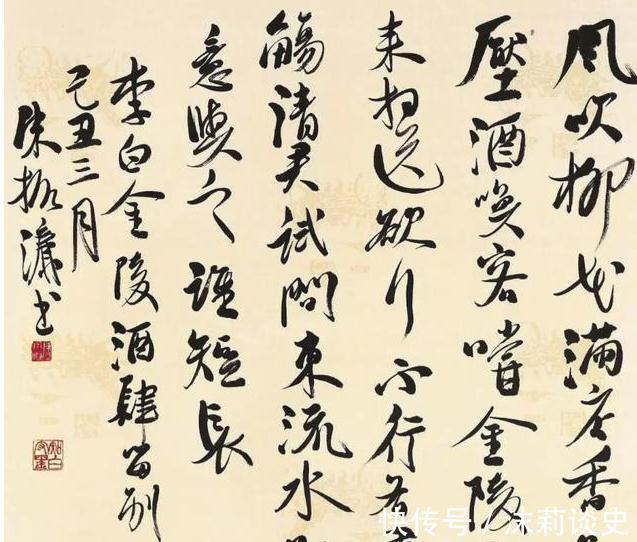 風吹柳花滿店香
壓酒喚客嚐金陵
來相送欲行不行各
觴請君試問東流水
意與之誰短長
李白金陵酒肆留别
己丑三月
朱振
快传号 / 沫莉谈史